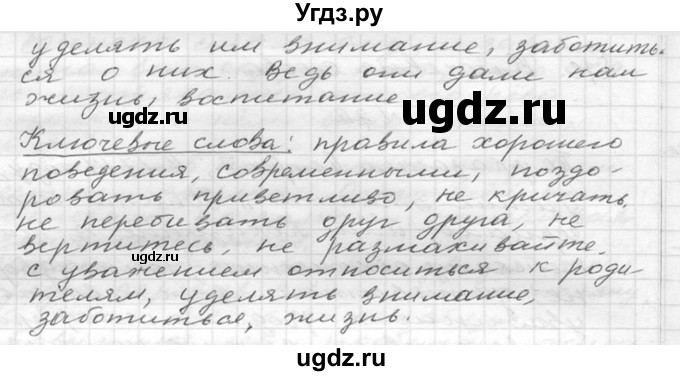 Угдз.ру
уделять им внимание, заботить-
ся о них. Ведь они дали нам
жизнь, воспитание
Ключевые слова: правила хорошего
поведения, современными, поздо-
ровать приветливо, не кричать,
не перебивать друг друга, не
вертитесь, не размахивайте,
с уважением относиться к роди-
телям, уделять внимание,
заботиться, жизнь.
ugdz.ru
ugdz.ru
ugdz.ru
ugdz.ru
ugdz.ru
ugdz.ru